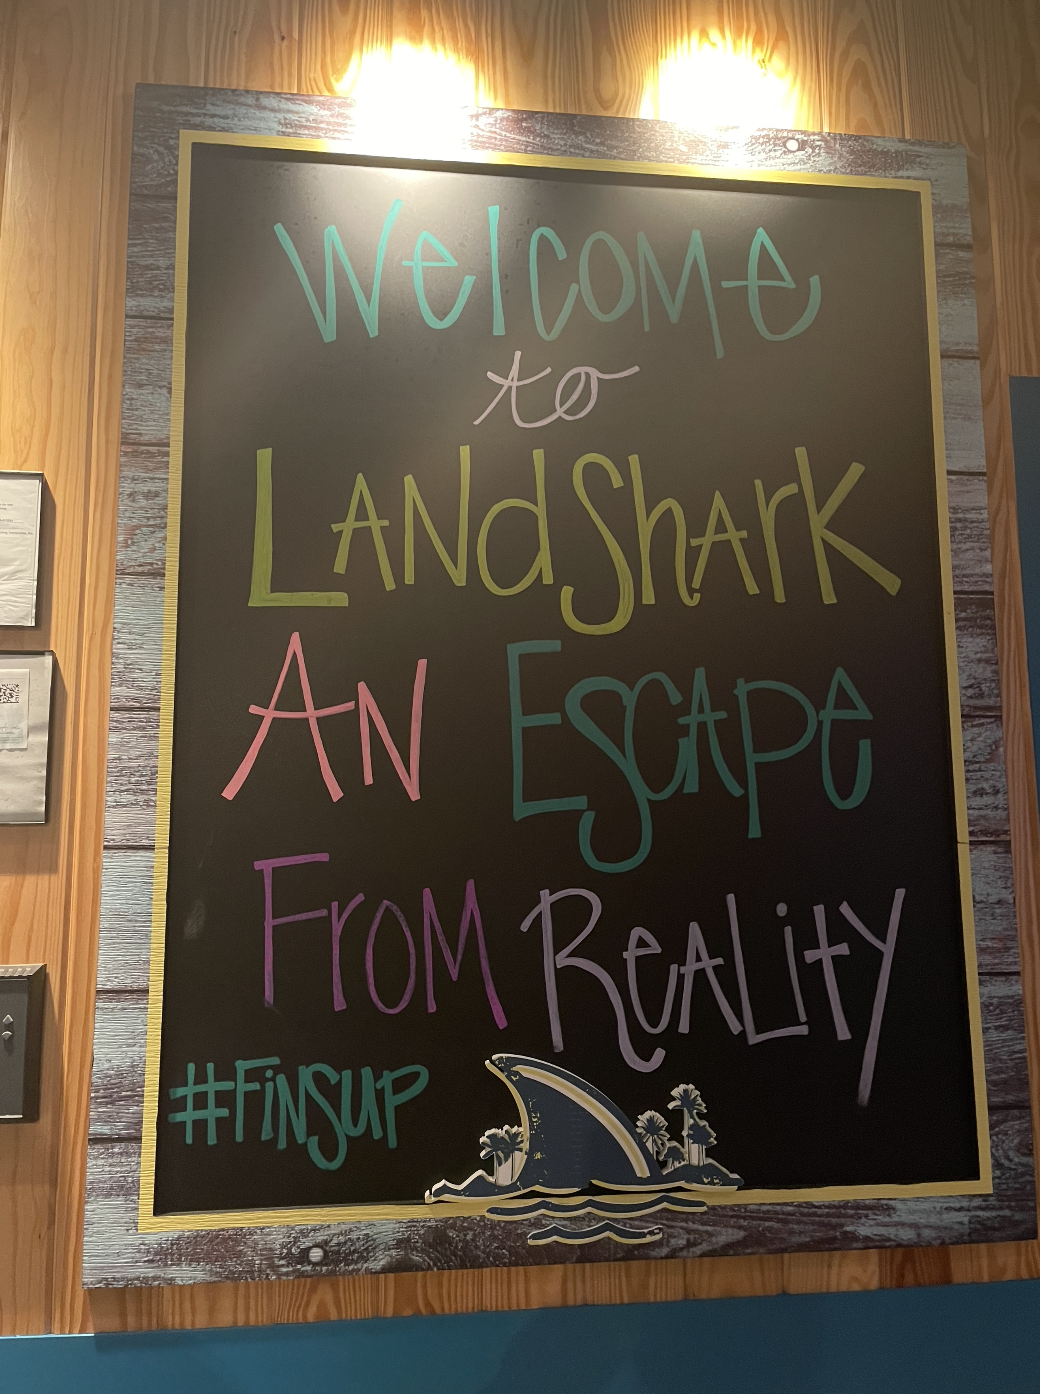 Welcome
to
LANdShArK
AN EScAPe
FroM ReALity
#FiNSUP